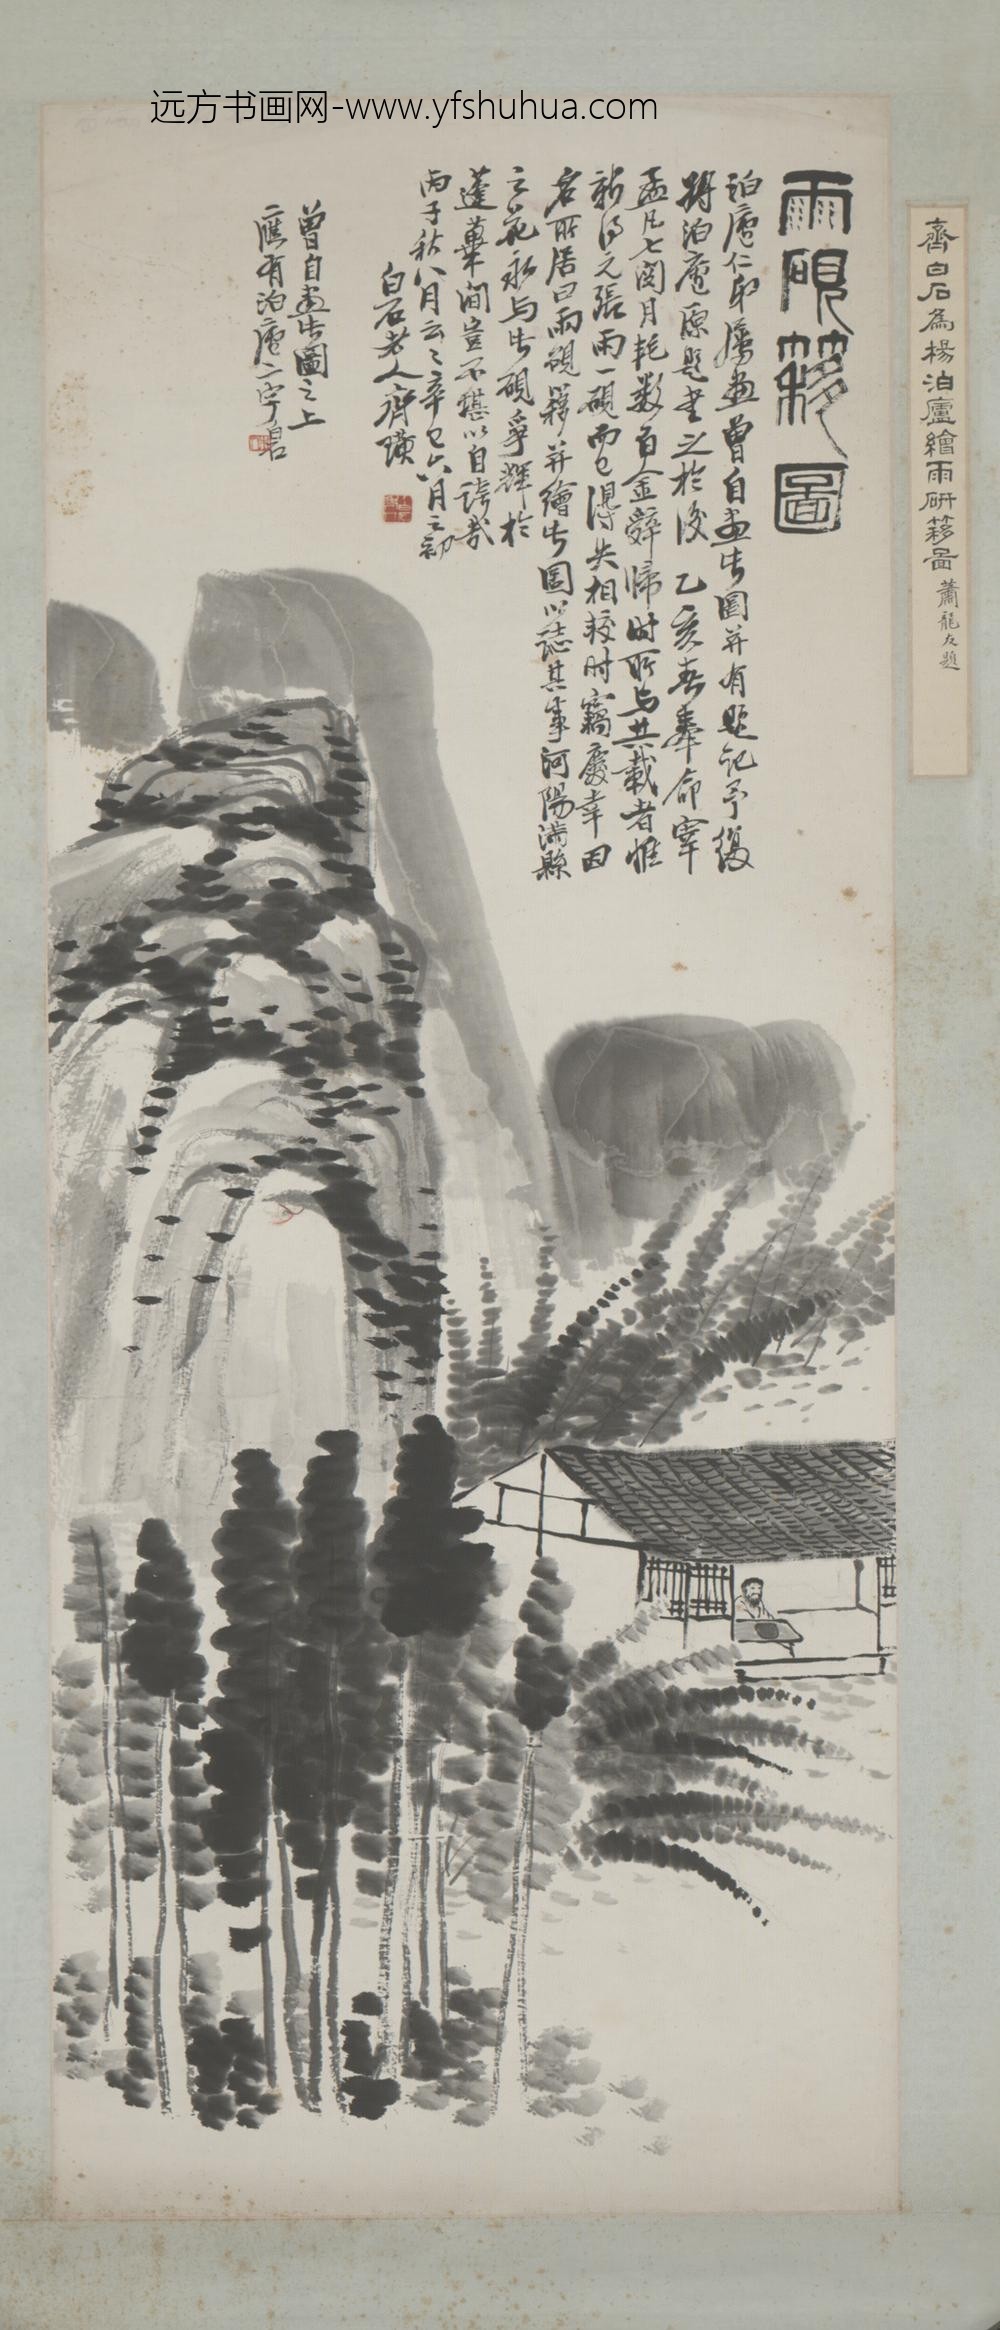 远方书画网-www.yfshuhua.com
雨硯簃圖
泊廬仁弟屬畫曾自畫此圖并有題記予復
將泊廬原題書之於後 乙亥春奉命宰
孟凡七閱月耗數百金辭歸時所与共載者惟
新得元張雨一硯而已得失相較時竊慶幸因
名所居曰雨硯簃并繪此圖以誌其事河陽滿縣
之花永与此硯爭輝於
蓬蓽間豈不堪以自誇哉
丙子秋八月云云辛巳六月之初
白石老人齊璜
曾自畫此圖之上
應有泊廬二字
齊白石為楊泊廬繪雨研簃圖 蕭龍友題